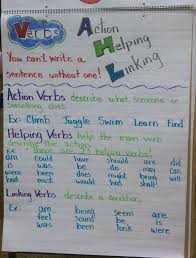 Verbs
Action
Helping
Linking
You can't write a
sentence without one!
Action Verbs describe what someone or
something does.
Ex: Climb Juggle Swim Learn Find
Helping Verbs help the main verb
describe the action.
ex: there are 23 helping verbs!
am could have should are did
can is be do may
were does had might will
been must would has shall
Linking Verbs describe a condition.
Ex: am being seem are
feel were is
was been look were